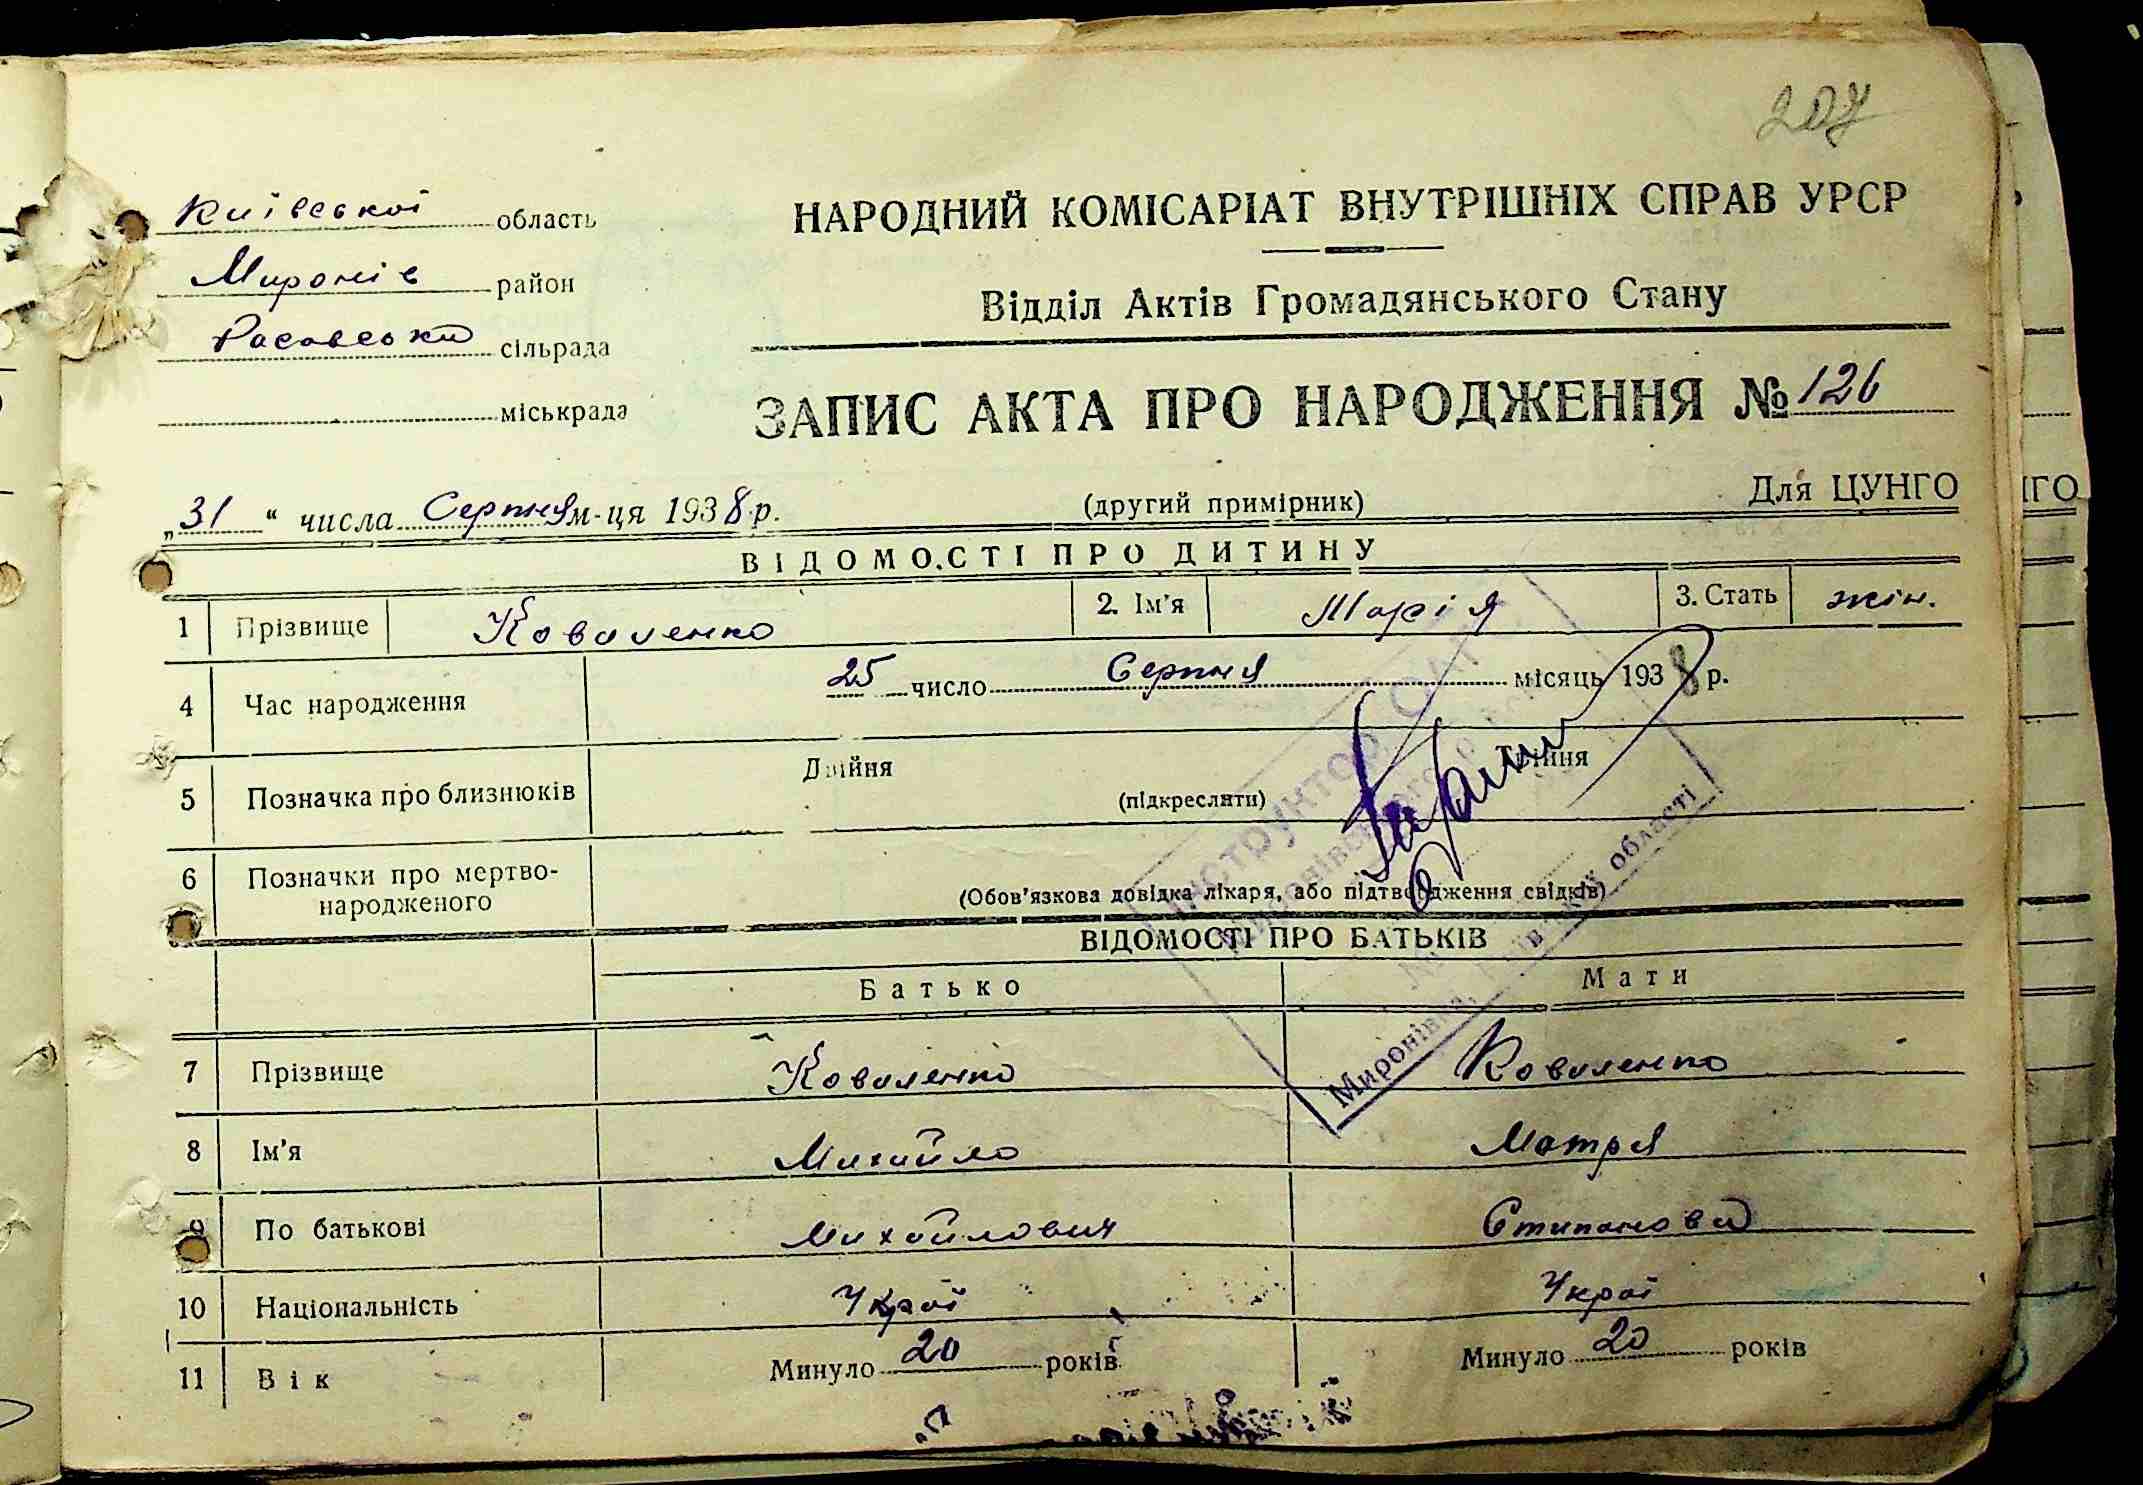 207
Київської область
Миронів район
Расавська сільрада
міськрада
НАРОДНИЙ КОМІСАРІАТ ВНУТРІШНІХ СПРАВ УРСР
Відділ Актів Громадянського Стану
ЗАПИС АКТА ПРО НАРОДЖЕННЯ № 126
„31“ числа Серпня м-ця 1938 р. (другий примірник) Для ЦУНГО
ВІДОМОСТІ ПРО ДИТИНУ
1 Прізвище Коваленко 2. Ім'я Марія 3. Стать жін.
4 Час народження 25 число Серпня місяць 1938 р.
5 Позначка про близнюків Двійня (підкреслити) Трійня
6 Позначки про мертво-
народженого (Обов'язкова довідка лікаря, або підтвердження свідків)
ВІДОМОСТІ ПРО БАТЬКІВ
Батько Мати
7 Прізвище Коваленко Коваленко
8 Ім'я Михайло Мотря
9 По батькові Михайлович Степанова
10 Національність Украї Украї
11 Вік Минуло 20 років Минуло 20 років